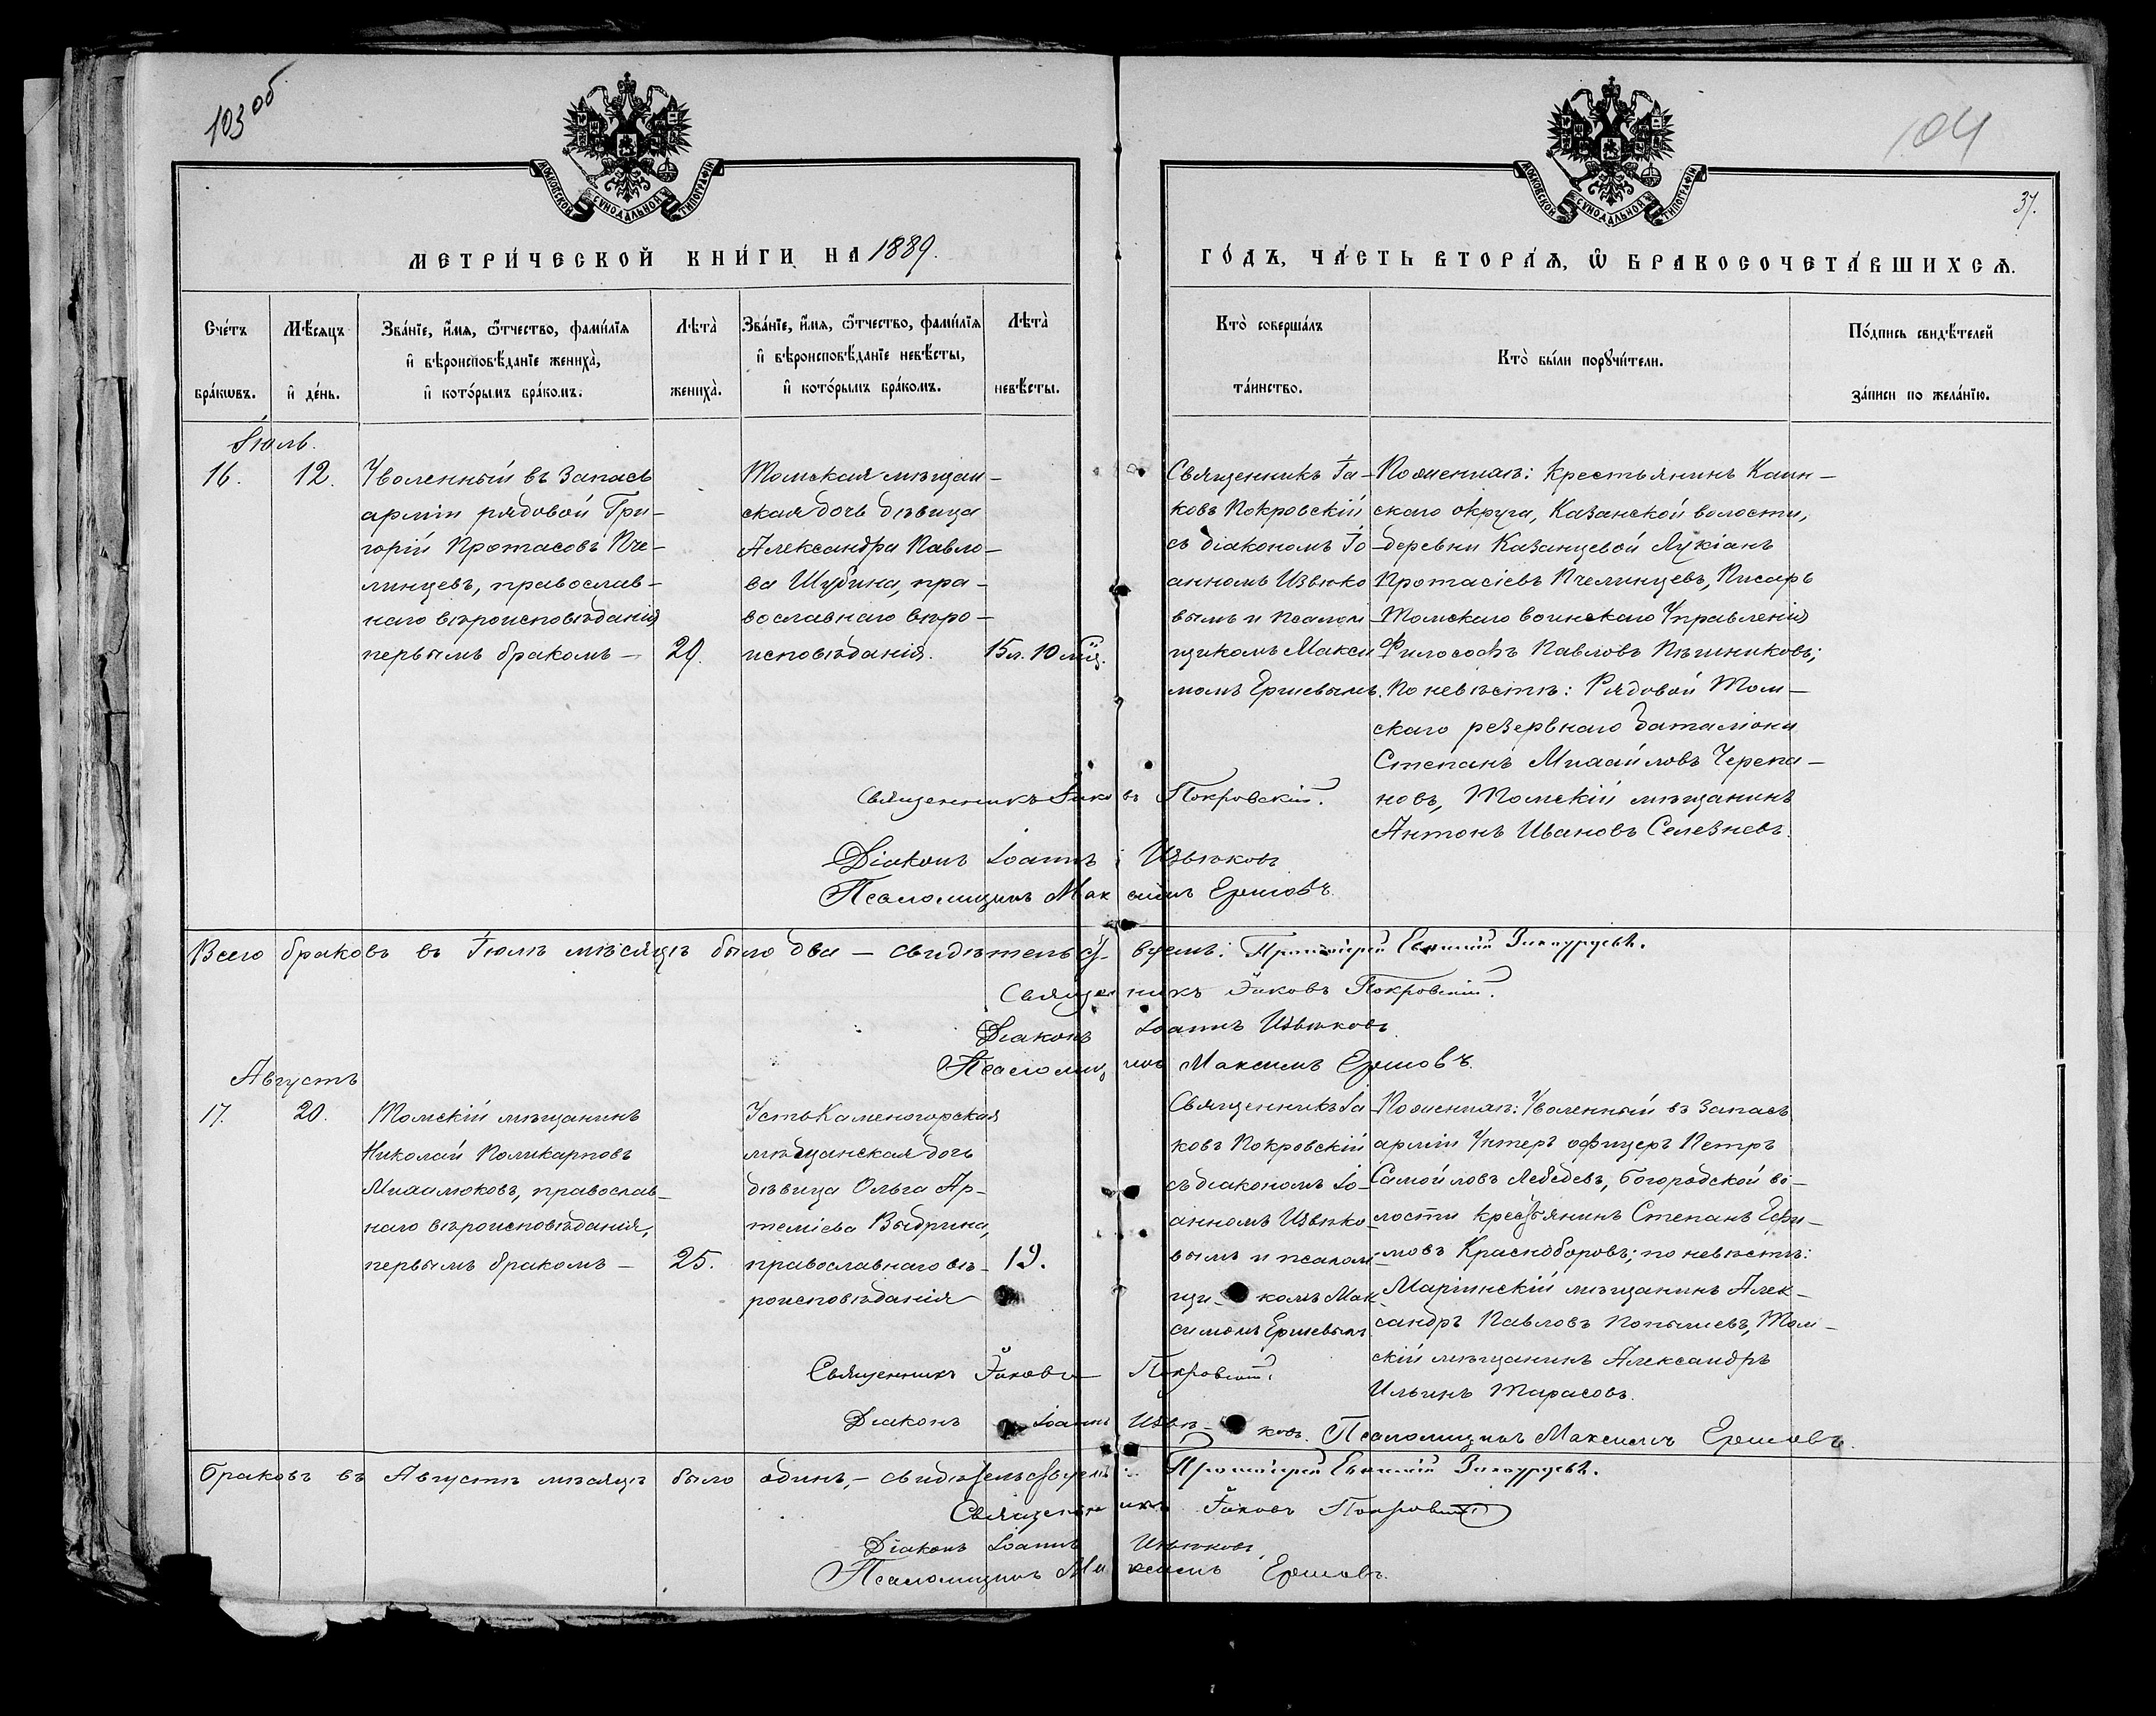 103 об
104
37.
МОСКОВСКОЙ СѴНОДАЛЬНОЙ ТИПОГРАФІИ
МОСКОВСКОЙ СѴНОДАЛЬНОЙ ТИПОГРАФІИ
МЕТРИ́ЧЕСКОЙ КНИ́ГИ НА 1889.
ГО́ДЪ, ЧА́СТЬ ВТОРА́Ѧ, Ѡ҆ БРАКОСОЧЕТА́ВШИХСѦ.
Сче́тъ
бра́кωвъ.
Мѣ́сяцъ
и҆ де́нь.
Зва́нїе, и҆́мѧ, ѻ҆́тчество, фами́лїѧ
и҆ вѣроисповѣ́данїе жениха̀,
и҆ кото́рымъ бра́комъ.
Лѣта̀
жениха̀.
Зва́нїе, и҆́мѧ, ѻ҆́тчество, фами́лїѧ
и҆ вѣроисповѣ́данїе невѣ́сты,
и҆ кото́рымъ бра́комъ.
Лѣта̀
невѣ́сты.
Кто̀ соверша́лъ
та́инство.
Кто̀ бы́ли порꙋчи́тели.
По́дпись свидѣ́телей
за́писи по жела́нїю.
Іюль.
16.
12.
Уволенный въ запасъ
арміи рядовой Гри-
горій Протасовъ Пче-
линцевъ, православ-
наго вѣроисповѣданія
первымъ бракомъ —
29.
Томская мѣщан-
ская дочь дѣвица
Александра Павло-
ва Шубина, пра-
вославнаго вѣро-
исповѣданія.
15 л. 10 мц.
Священникъ Іа-
ковъ Покровскій
съ діакономъ Іо-
анномъ Извѣко
вымъ и псалом-
щикомъ Макси
момъ Ершевымъ.
По женихѣ: Крестьянинъ Каин-
скаго округа, Казанской волости,
деревни Казанцевой Лукіанъ
Протасіевъ Пчелинцевъ, Писарь
Томскаго воинскаго Управленія
Философъ Павловъ Пѣшниковъ;
По невѣстѣ: Рядовой Том-
скаго резервнаго баталіона
Степанъ Михайловъ Черепа-
новъ, Томскій мѣщанинъ
Антонъ Ивановъ Селезневъ.
Священникъ Іаковъ Покровскій.
Діаконъ Іоаннъ Извѣковъ
Псаломщикъ Максимъ Ершовъ.
Всего браковъ въ Іюлѣ мѣсяцѣ было два — свидѣтельствуемъ: Протоіерей
Священникъ Іаковъ Покровскій.
Діаконъ Іоаннъ Извѣковъ
Псаломщикъ Максимъ Ершовъ.
Августъ
17.
20.
Томскій мѣщанинъ
Николай Поликарповъ
Михалюковъ, православ-
наго вѣроисповѣданія,
первымъ бракомъ —
25.
Усть Каменогорская
мѣщанская дочь
дѣвица Ольга Ар-
темієва Выдрина,
православнаго вѣ-
роисповѣданія
19.
Священникъ Іа
ковъ Покровскій
съ діакономъ Іо-
анномъ Извѣко-
вымъ и псалом-
щи-комъ Мак-
симомъ Ершевымъ
По женихѣ: Уволенный въ запасъ
арміи Унтеръ офицеръ Петръ
Самойловъ Лебедевъ, Богородской во-
лости крестьянинъ Степанъ Ефи-
мовъ Красноборовъ; по невѣстѣ:
Маріинскій мѣщанинъ Алек-
сандръ Павловъ Попышевъ, Том-
скій мѣщанинъ Александръ
Ильинъ Тарасовъ.
Священникъ Іаковъ Покровскій.
Діаконъ Іоаннъ Извѣ-ковъ. Псаломщикъ Максимъ Ершовъ.
Браковъ въ Августѣ мѣсяцѣ было одинъ, — свидѣтельствуемъ: Протоіерей
Священникъ Іаковъ Покровскій
Діаконъ Іоаннъ Извѣковъ,
Псаломщикъ Максимъ Ершовъ.